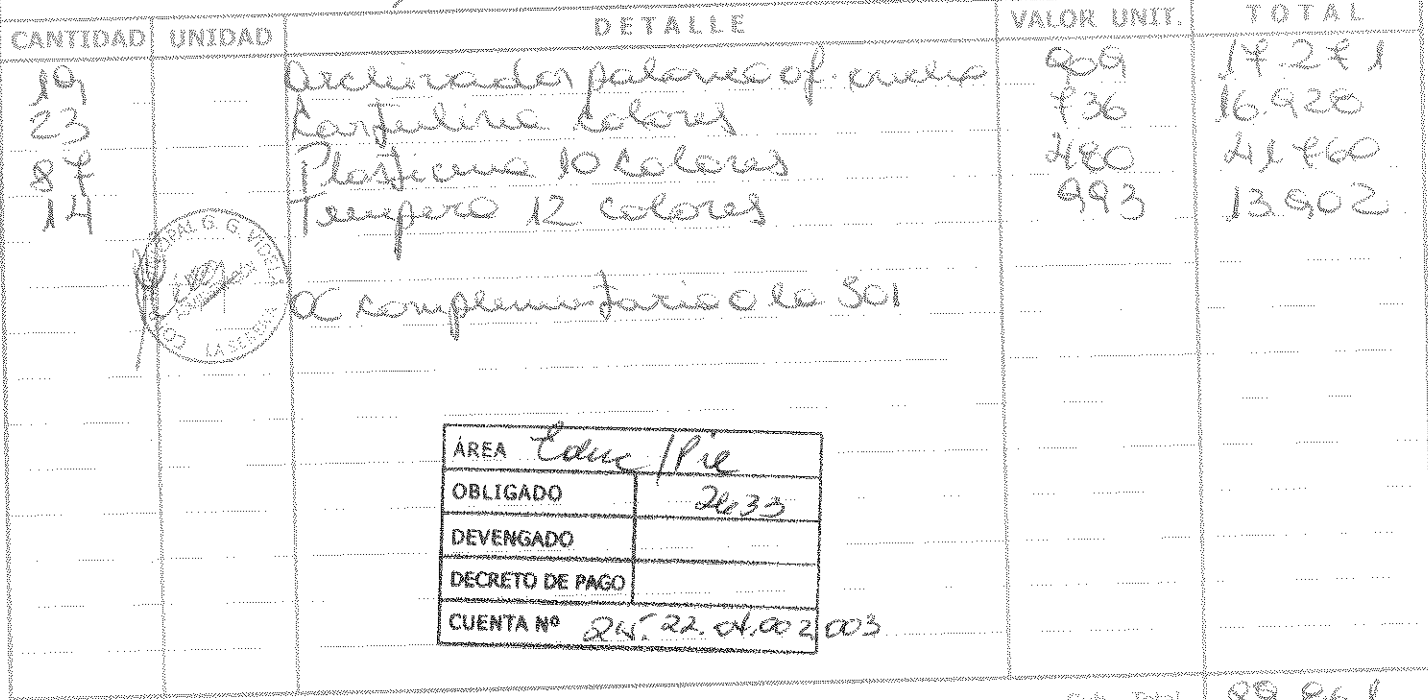 CANTIDAD UNIDAD DETALLE VALOR UNIT. TOTAL
19 Archivador palanca of. ancho 909 17.271
23 Cartulina colores 736 16.928
87 Plasticina 10 colores 480 41760
14 Tempera 12 colores 993 13.902
OC complementario a la 301
G. G. VIDELA
LA SERENA
ÁREA Educ/Pie
OBLIGADO 2633
DEVENGADO
DECRETO DE PAGO
CUENTA Nº 22.04.002 003
Sub Total 89.861